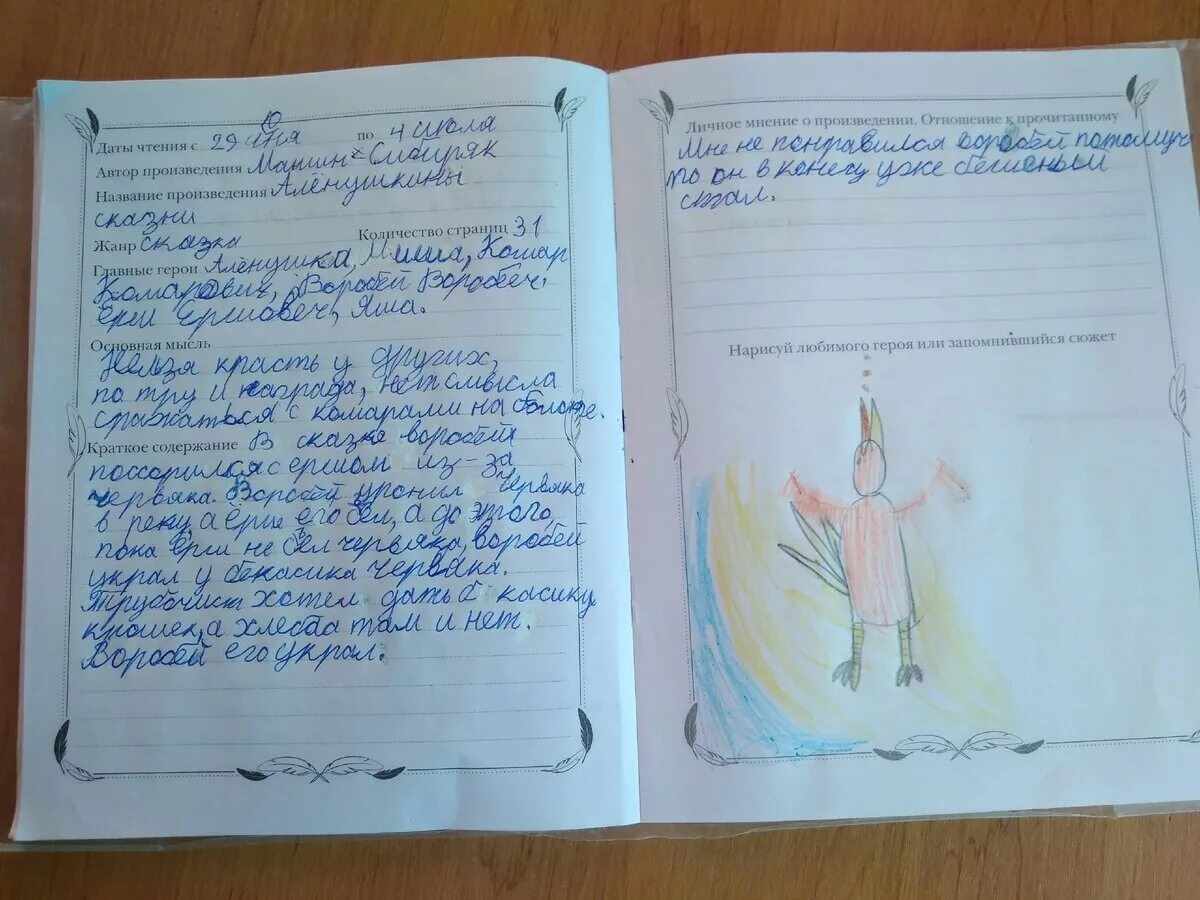 Даты чтения с 29 июня по 4 июля
Автор произведения Мамин-Сибиряк
Название произведения Алёнушкины
сказки
Жанр сказка Количество страниц 31
Главные герои Алёнушка, Миша, Комар
Комарович, Воробей Воробеич.
ёрш Ершовеч, Яша.
Основная мысль
Нельзя красть у других,
по тру и награда, нет смысла
сражаться с комарами на болоте.
Краткое содержание В сказке воробей
поссорился с ершом из-за
червяка. Воробей уронил червяка
в реку, а ёрш его сел, а до этого,
пока ёрш не сел червяка, воробей
украл у бекасика червяка.
Трубочист хотел дать б касику
крошек, а хлеба там и нет.
Воробей его украл.
Личное мнение о произведении. Отношение к прочитанному
Мне не понравился воробей потомуч
то он в конецу уже бешеный
стал.
Нарисуй любимого героя или запомнившийся сюжет